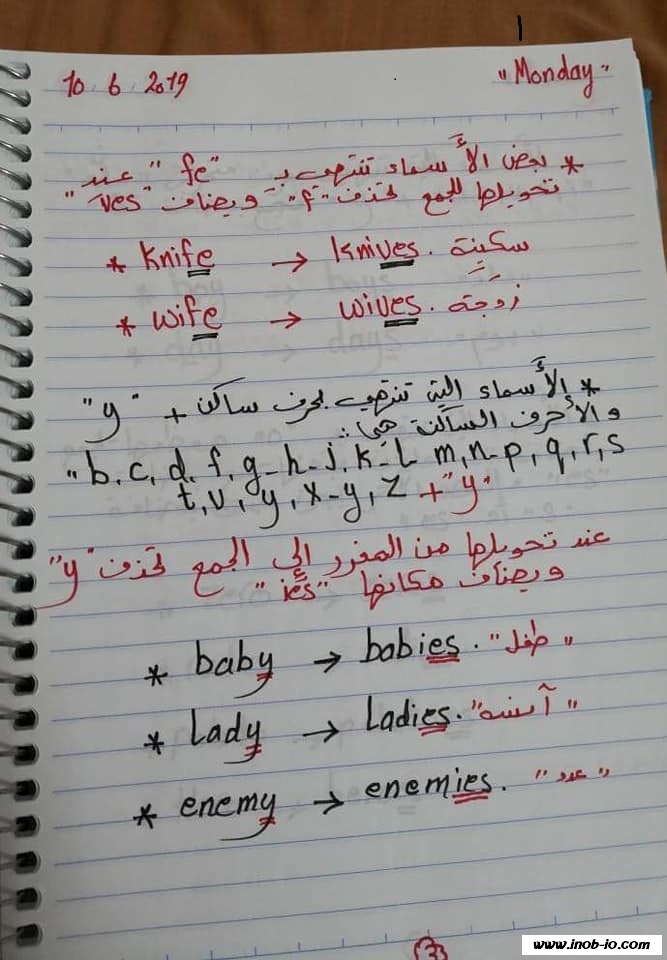 10 . 6 . 2019 "Monday"
* بعض الأسماء تنتهي بـ "fe" عند
تحويلها للجمع تحذف "f" ويضاف "ves"
* Knife → Knives. سكينة
* wife → wives. زوجة
* الأسماء التي تنتهي بحرف ساكن + "y"
والأحرف الساكنة هي:
"b, c, d, f, g - h - j, k - L m, n - p, q, r, s
t, v, y, x - y, z + "y"
عند تحويلها من المفرد إلى الجمع تحذف "y"
ويضاف مكانها "ies"
* baby → babies. "طفل"
* Lady → Ladies. "آنسة"
* enemy → enemies. "عدو"
3
www.inob-io.com